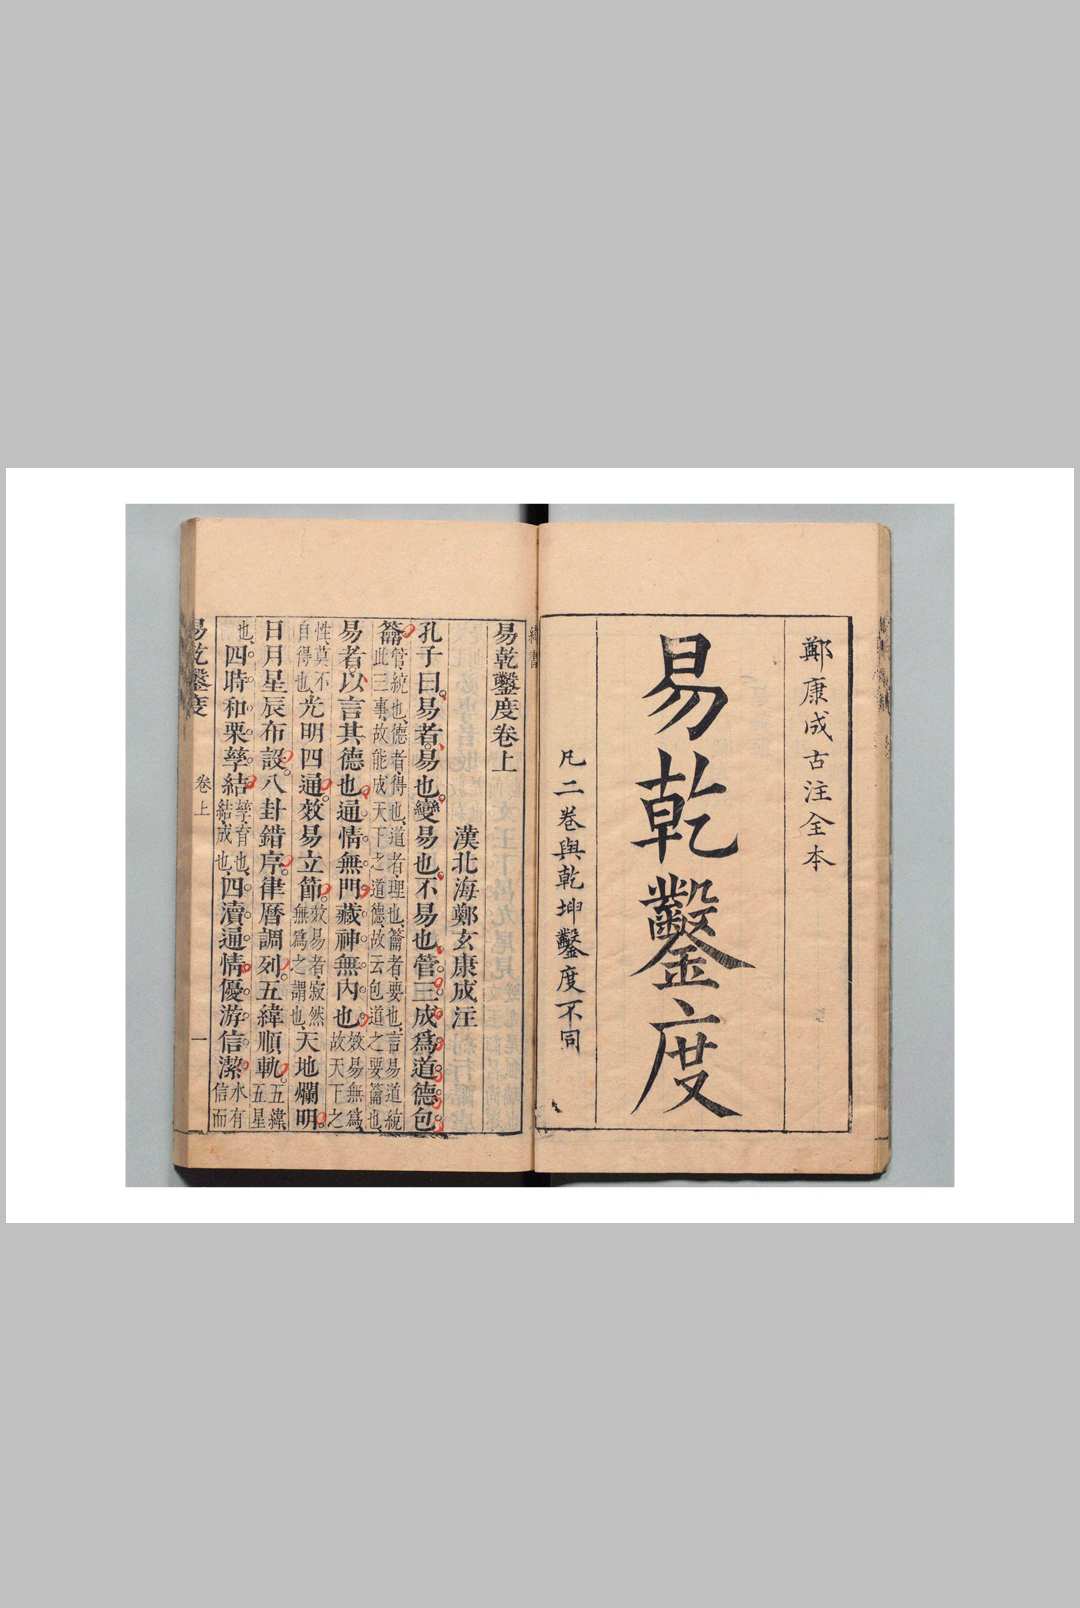 鄭康成古注全本
易乾鑿度
凡二巻與乾坤鑿度不同
緯書
易乾鑿度卷上
漢北海鄭玄康成注
孔子曰易者易也變易也不易也管三成爲道德包
籥管統也德者得也道者理也籥者要也言易道統此三事故能成天下之道德故云包道之要籥也
易者以言其德也通情無門藏神無内也效易無爲故天下之
性莫不自得也光明四通效易立節效易者寂然無爲之謂也天地爛明
日月星辰布設八卦錯序律曆調列五緯順軌五緯五星
也四時和栗孳結孳育也結成也四瀆通情優游信潔水有信而
易乾鑿度
卷上
一